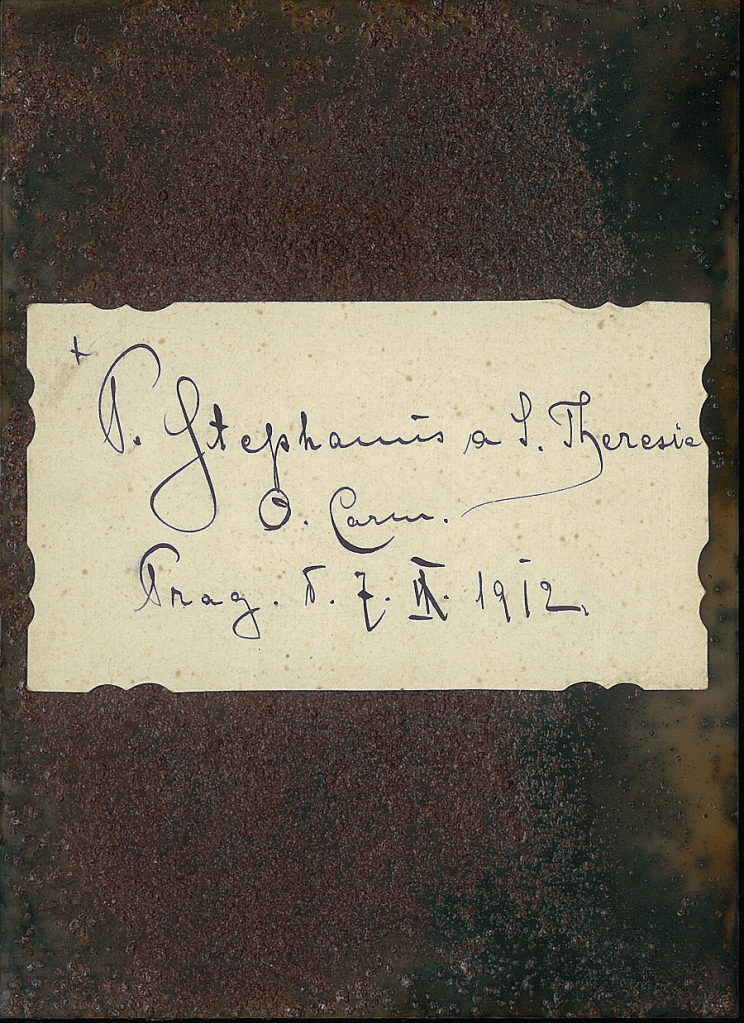 +
P. Stephanus a S. Theresia
O. Carm.
Prag. d. 7. IX. 1912.